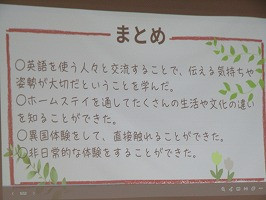 まとめ
○英語を使う人々と交流することで、伝える気持ちや
姿勢が大切だということを学んだ。
○ホームステイを通してたくさんの生活や文化の違い
を知ることができた。
○異国体験をして、直接触れることができた。
○非日常的な体験をすることができた。